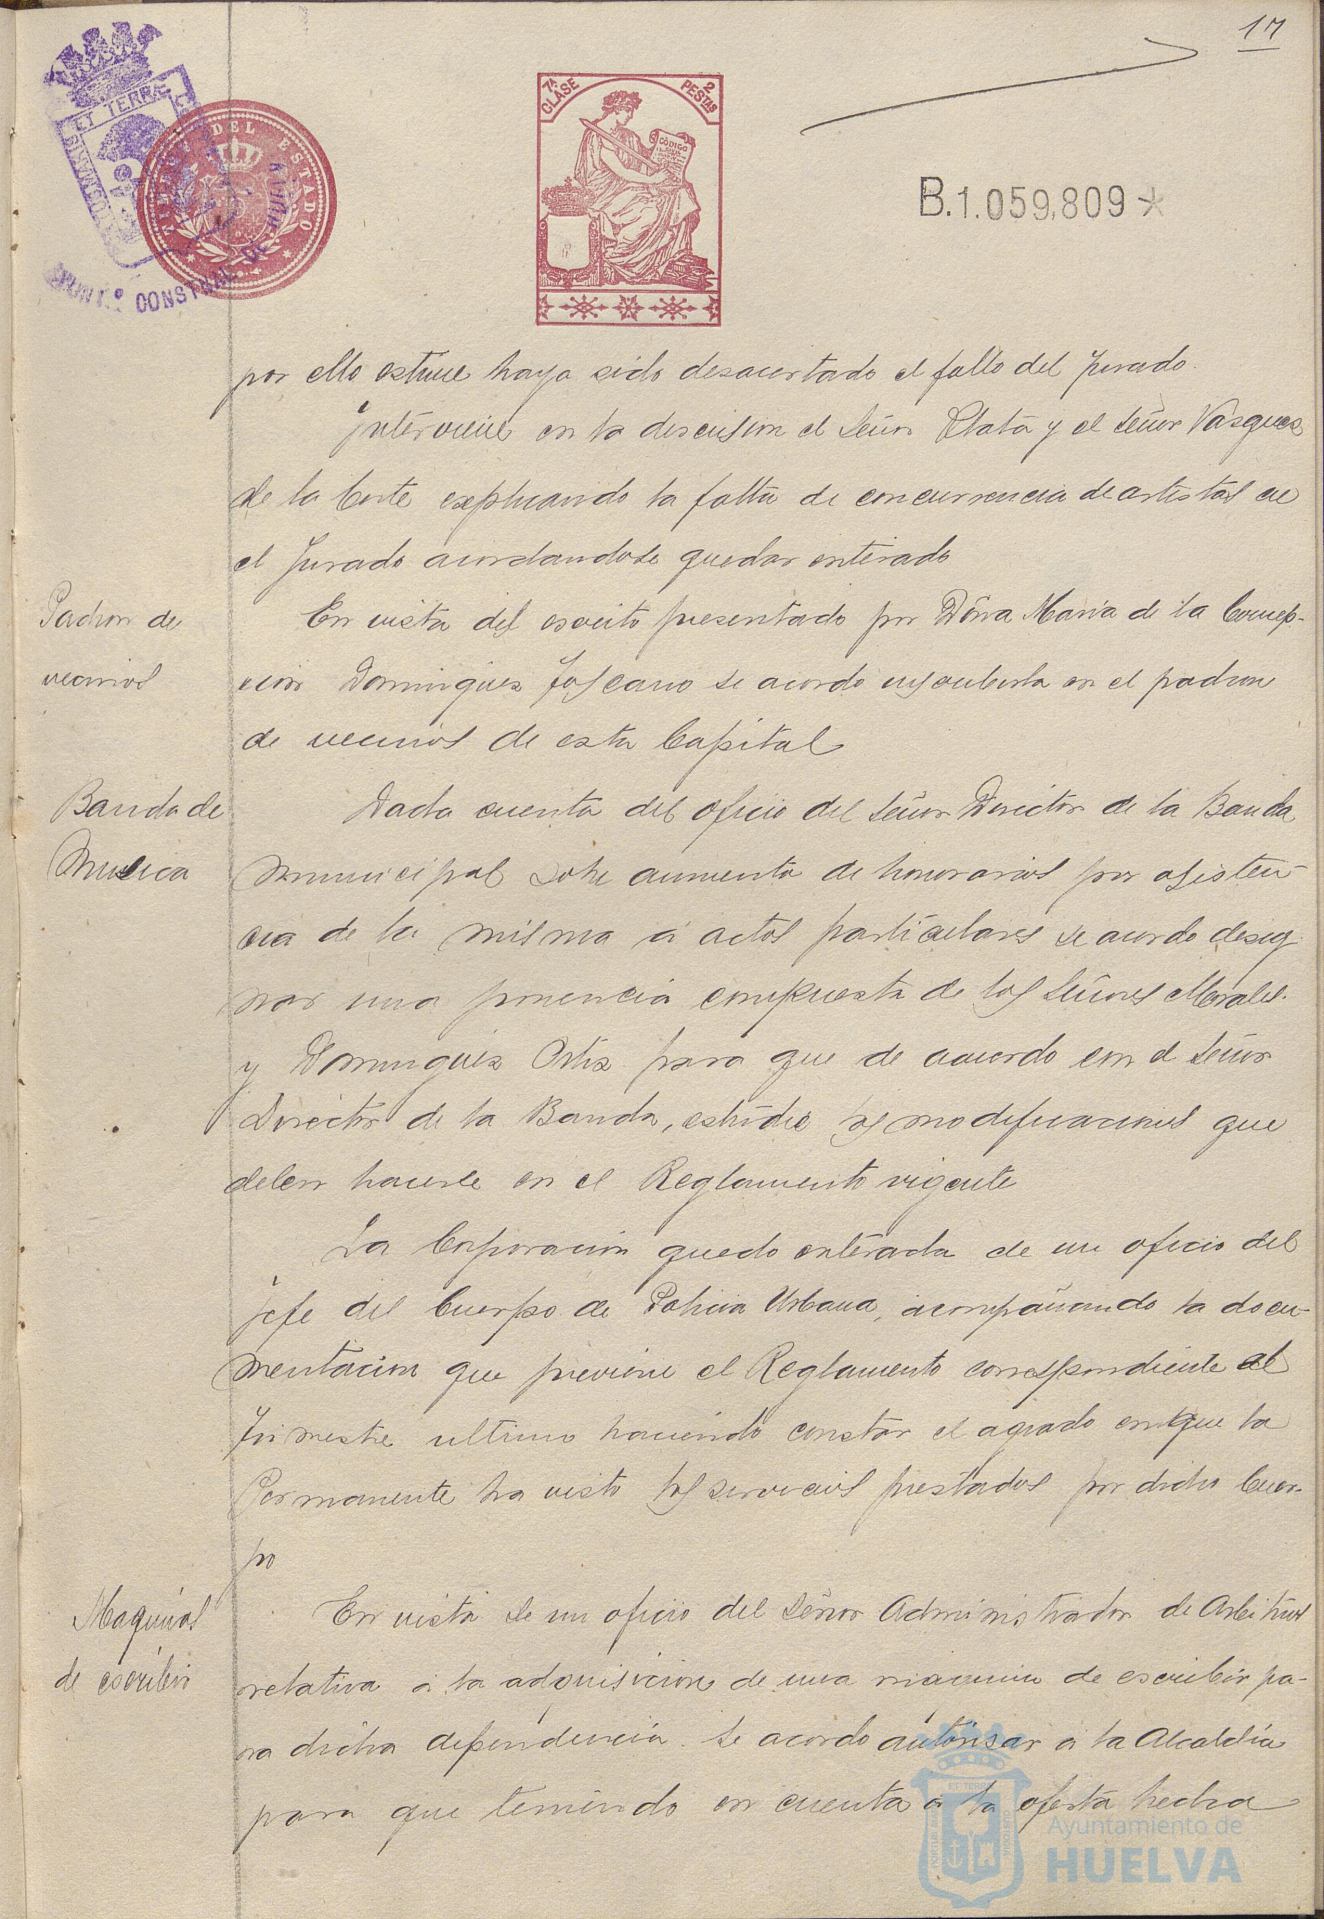 17
7ª CLASE
2 PESTAS
CÓDIGO
ET TERRÆ
DEL ESTADO
CONSTNAL DE
B.1.059,809*
por ello estime haya sido desacertado el fallo del Jurado.
Interviene en la discusion el Señor Plata y el Señor Vasques
de la Corte explicando la falta de concurrencia de artistas en
el Jurado acordandose quedar enterado
Padron de
vecinos
En vista del escrito presentado por Doña Maria de la Concep-
cion Dominguez Toscano se acordo inscribirla en el padron
de vecinos de esta Capital
Banda de
Musica
Dada cuenta del oficio del Señor Director de la Banda
municipal sobre aumento de honorarios por asisten-
cia de la misma á actos particulares se acordo desig-
nar una ponencia compuesta de los Señores Morales
y Dominguez Ortiz para que de acuerdo con el Señor
Director de la Banda, estudie las modificaciones que
deben hacerse en el Reglamento vigente
La Corporacion quedo enterada de un oficio del
Jefe del Cuerpo de Policia Urbana, acompañando la docu-
mentacion que previene el Reglamento correspondiente al
trimestre ultimo haciendo constar el agrado con que la
Permanente ha visto los servicios prestados por dicho Cuer-
po
Maquinas
de escribir
En vista de un oficio del Señor Administrador de Arbitrios
relativa á la adquisicion de una maquina de escribir pa-
ra dicha dependencia se acordo autorisar a la Alcaldia
para que teniendo en cuenta á la oferta hecha
Ayuntamiento de
HUELVA